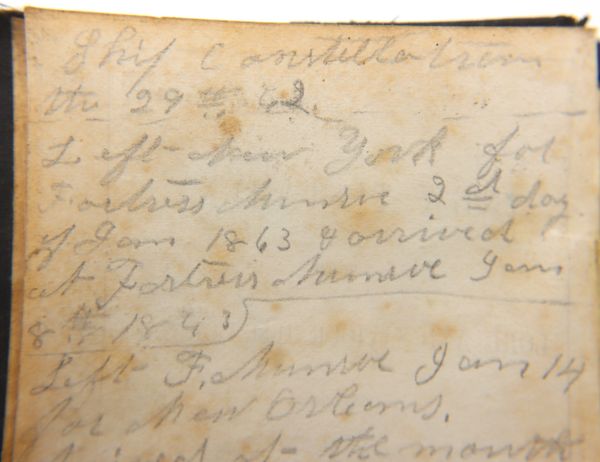 Ship Constellation
the 29th, 62.
Left New York for
Fortress Munroe 2d day
of Jan 1863 & arrived
at Fortress Munroe Jan
8th 1863
Left F. Munroe Jan 14
for New Orleans.
at the mouth